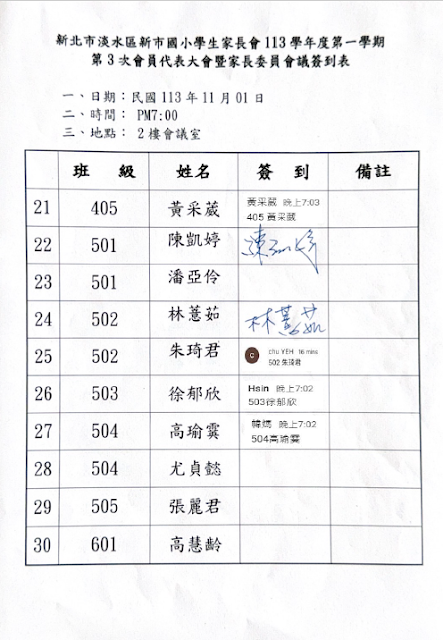 新北市淡水區新市國小學生家長會 113 學年度第一學期
第 3 次會員代表大會暨家長委員會議簽到表
一、日期：民國 113 年 11 月 01 日
二、時間： PM7:00
三、地點： 2 樓會議室
班 級 姓名 簽 到 備註
21 405 黃采葳 黃采葳 晚上7:03
405 黃采葳
22 501 陳凱婷 陳凱婷
23 501 潘亞伶
24 502 林薏茹 林薏茹
25 502 朱琦君 C chu YEH 16 mins
502 朱琦君
26 503 徐郁欣 Hsin 晚上7:02
503徐郁欣
27 504 高瑜霙 韓媽 晚上7:02
504高瑜霙
28 504 尤貞懿
29 505 張麗君
30 601 高慧齡